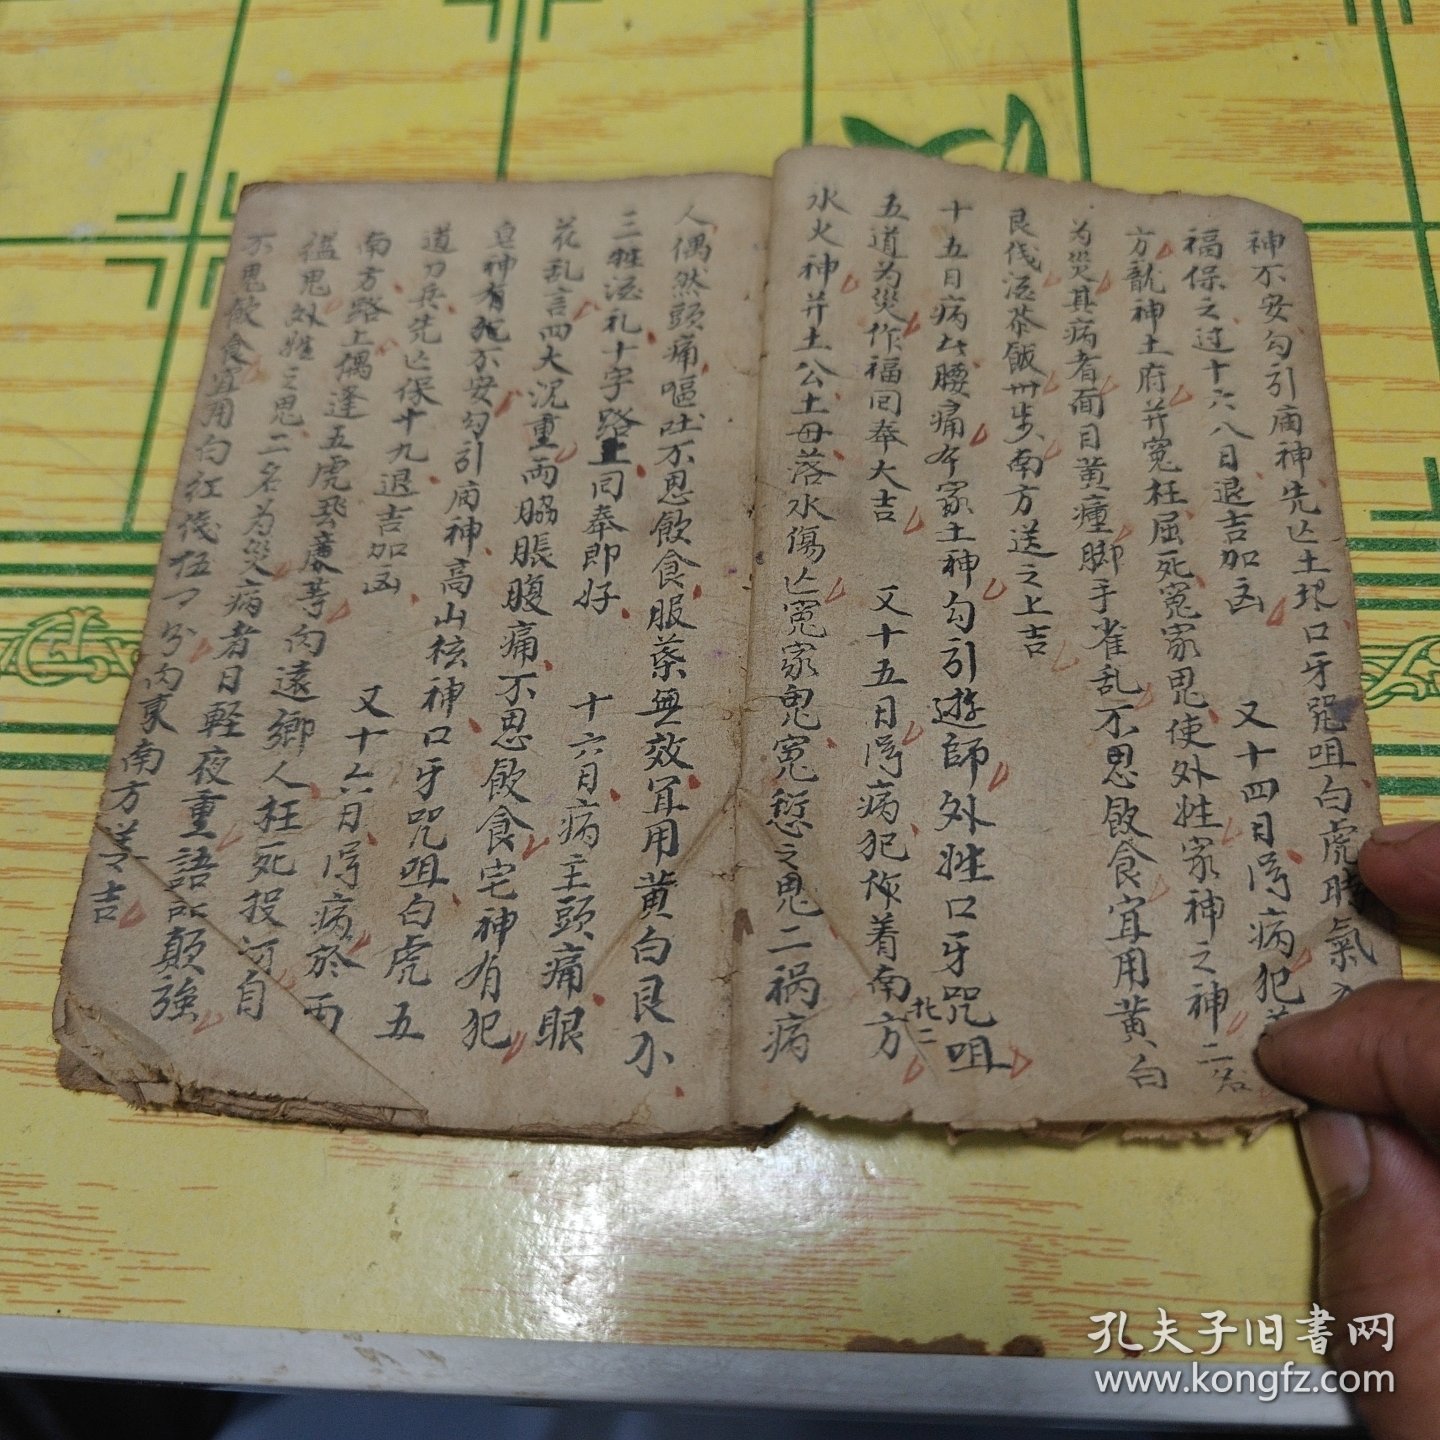 神不安勾引廟神先亡土地口牙咒咀白虎時氣
福保之过十六八日退吉加凶 又十四日得病犯
方龍神土府并冤枉屈死冤家鬼使外姓家神之神二名
为災其病者面目黄瘇脚手雀乱不思飲食宜用黄白
艮伐滛茶飯卅步南方送之上吉
十五日病人腰痛本家土神勾引遊師外姓口牙咒咀
五道为災作福回奉大吉 又十五日得病犯係着南方北二
水火神并土公土母落水傷亡冤家鬼冤愆之鬼二祸病
人偶然頭痛嘔吐不思飲食服葯無效宜用黄白艮水
三牲滛礼十字路上回奉即好 十六日病主頭痛眼
花乱言四大沉重両脇脹腹痛不思飲食宅神有犯
皂神有犯不安勾引庙神高山核神口牙咒咀白虎五
道刀兵先亡保十九退吉加凶 又十六日得病於西
南方路上偶逢五虎䒑廣等向遠鄉人枉死投河自
瘟鬼外姓之鬼二名为災病者日軽夜重語所顛強
不鬼飲食宜用白红伐伍丁分向東南方送吉
孔夫子旧書网
www.kongfz.com